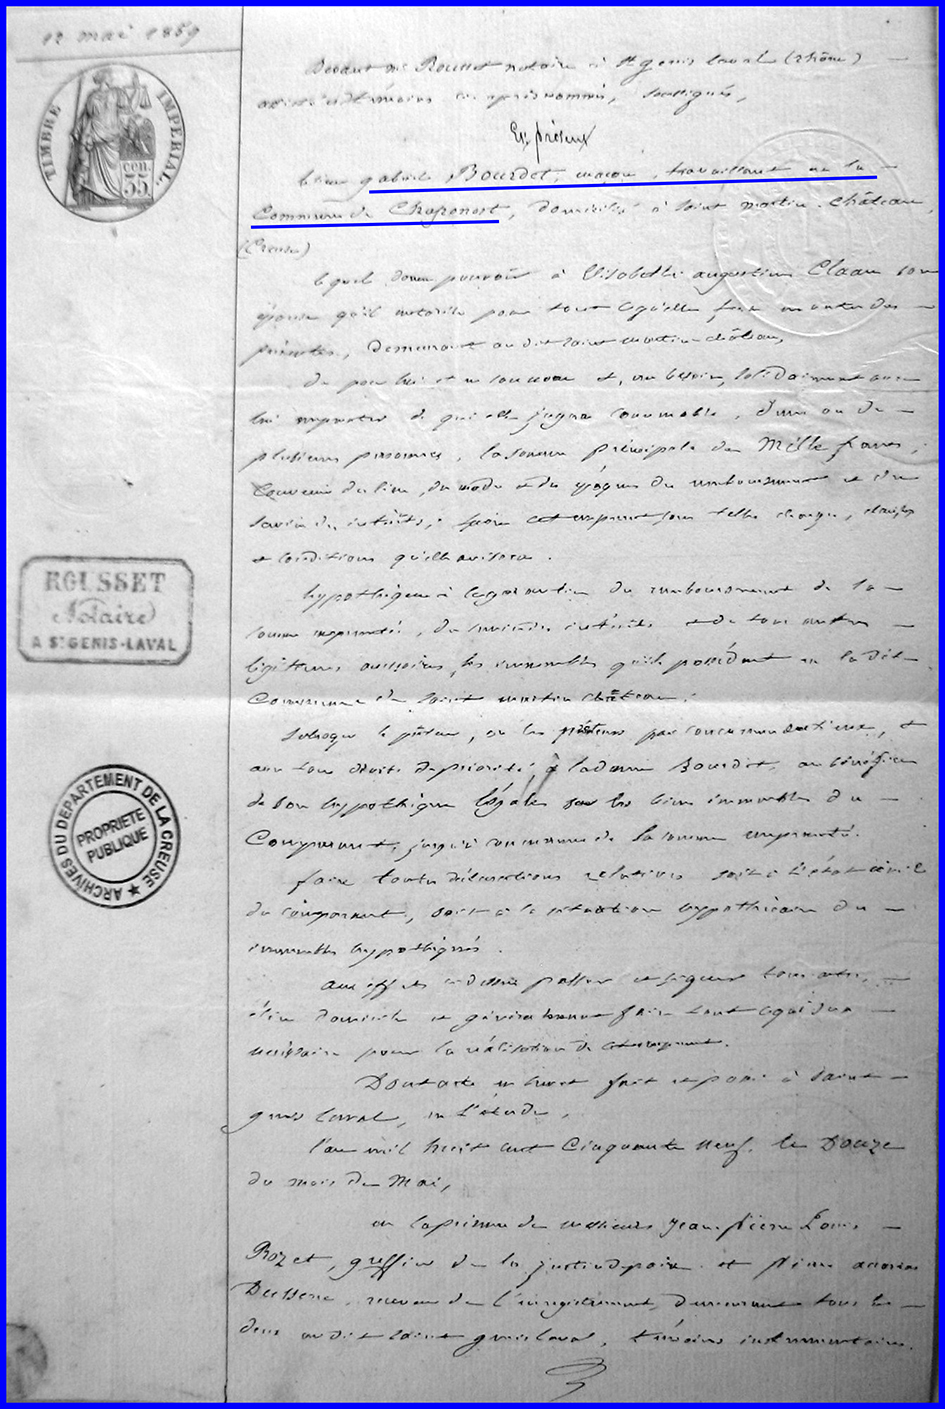 12 mai 1859
TIMBRE IMPERIAL
cen.
35
Devant Me Rousset notaire à St genis laval (rhône)
témoins ci-après nommés, soussignés,
Est présent
gabriel Bourdet, maçon, travaillant en la
Commune de Chaponost, domicilié à Saint martin-château,
(Creuse)
lequel donne pouvoir à Elisabeth augustine son
épouse qu'il autorise pour tout ce qu'elle fera en vertu des
présentes, demeurant au dit Saint martin-château,
De pour lui et en son nom et, au besoin, solidairement avec
lui emprunter de qui elle jugera convenable, d'une ou de
plusieurs personnes, la somme principale de Mille francs,
Convenir du lieu, du mode et de époques du remboursement et du
service des intérêts, faire cet emprunt sous telles charges, clauses
et conditions qu'elle avisera.
hypothéquer à la garantie du remboursement de la
somme empruntée, du service des intérêts et de tous autres
légitimes accessoires, les immeubles qu'ils possèdent en la dite
Commune de Saint martin château.
ROUSSET
Notaire
A St GENIS-LAVAL
Subroger le prêteur, ou les prêteurs par concurrence entre eux, et
avec tous droits de priorité, à la dame Bourdet, au bénéfice
de son hypothèque légale sur les biens immeubles du
Comparant, jusqu'à concurrence de la somme empruntée.
ARCHIVES DU DEPARTEMENT DE LA CREUSE ★
PROPRIETE
PUBLIQUE
faire toutes déclarations relatives soit à l'état civil
du comparant, soit à la situation hypothécaire des
immeubles hypothéqués.
Aux effets ci-dessus passer et signer tous actes,
élire domicile et généralement faire tout ce qui sera
nécessaire pour la réalisation de cet emprunt.
Dont acte en brevet fait et passé à Saint
genis laval, en l'étude,
l'an mil huit cent Cinquante neuf, le Douze
du mois de Mai,
en la présence de messieurs Jean-pierre Louis
Rozet, greffier de la justice de paix et pierre
receveur de l'enregistrement, demeurant tous les
deux au dit Saint genis laval, témoins instrumentaires.